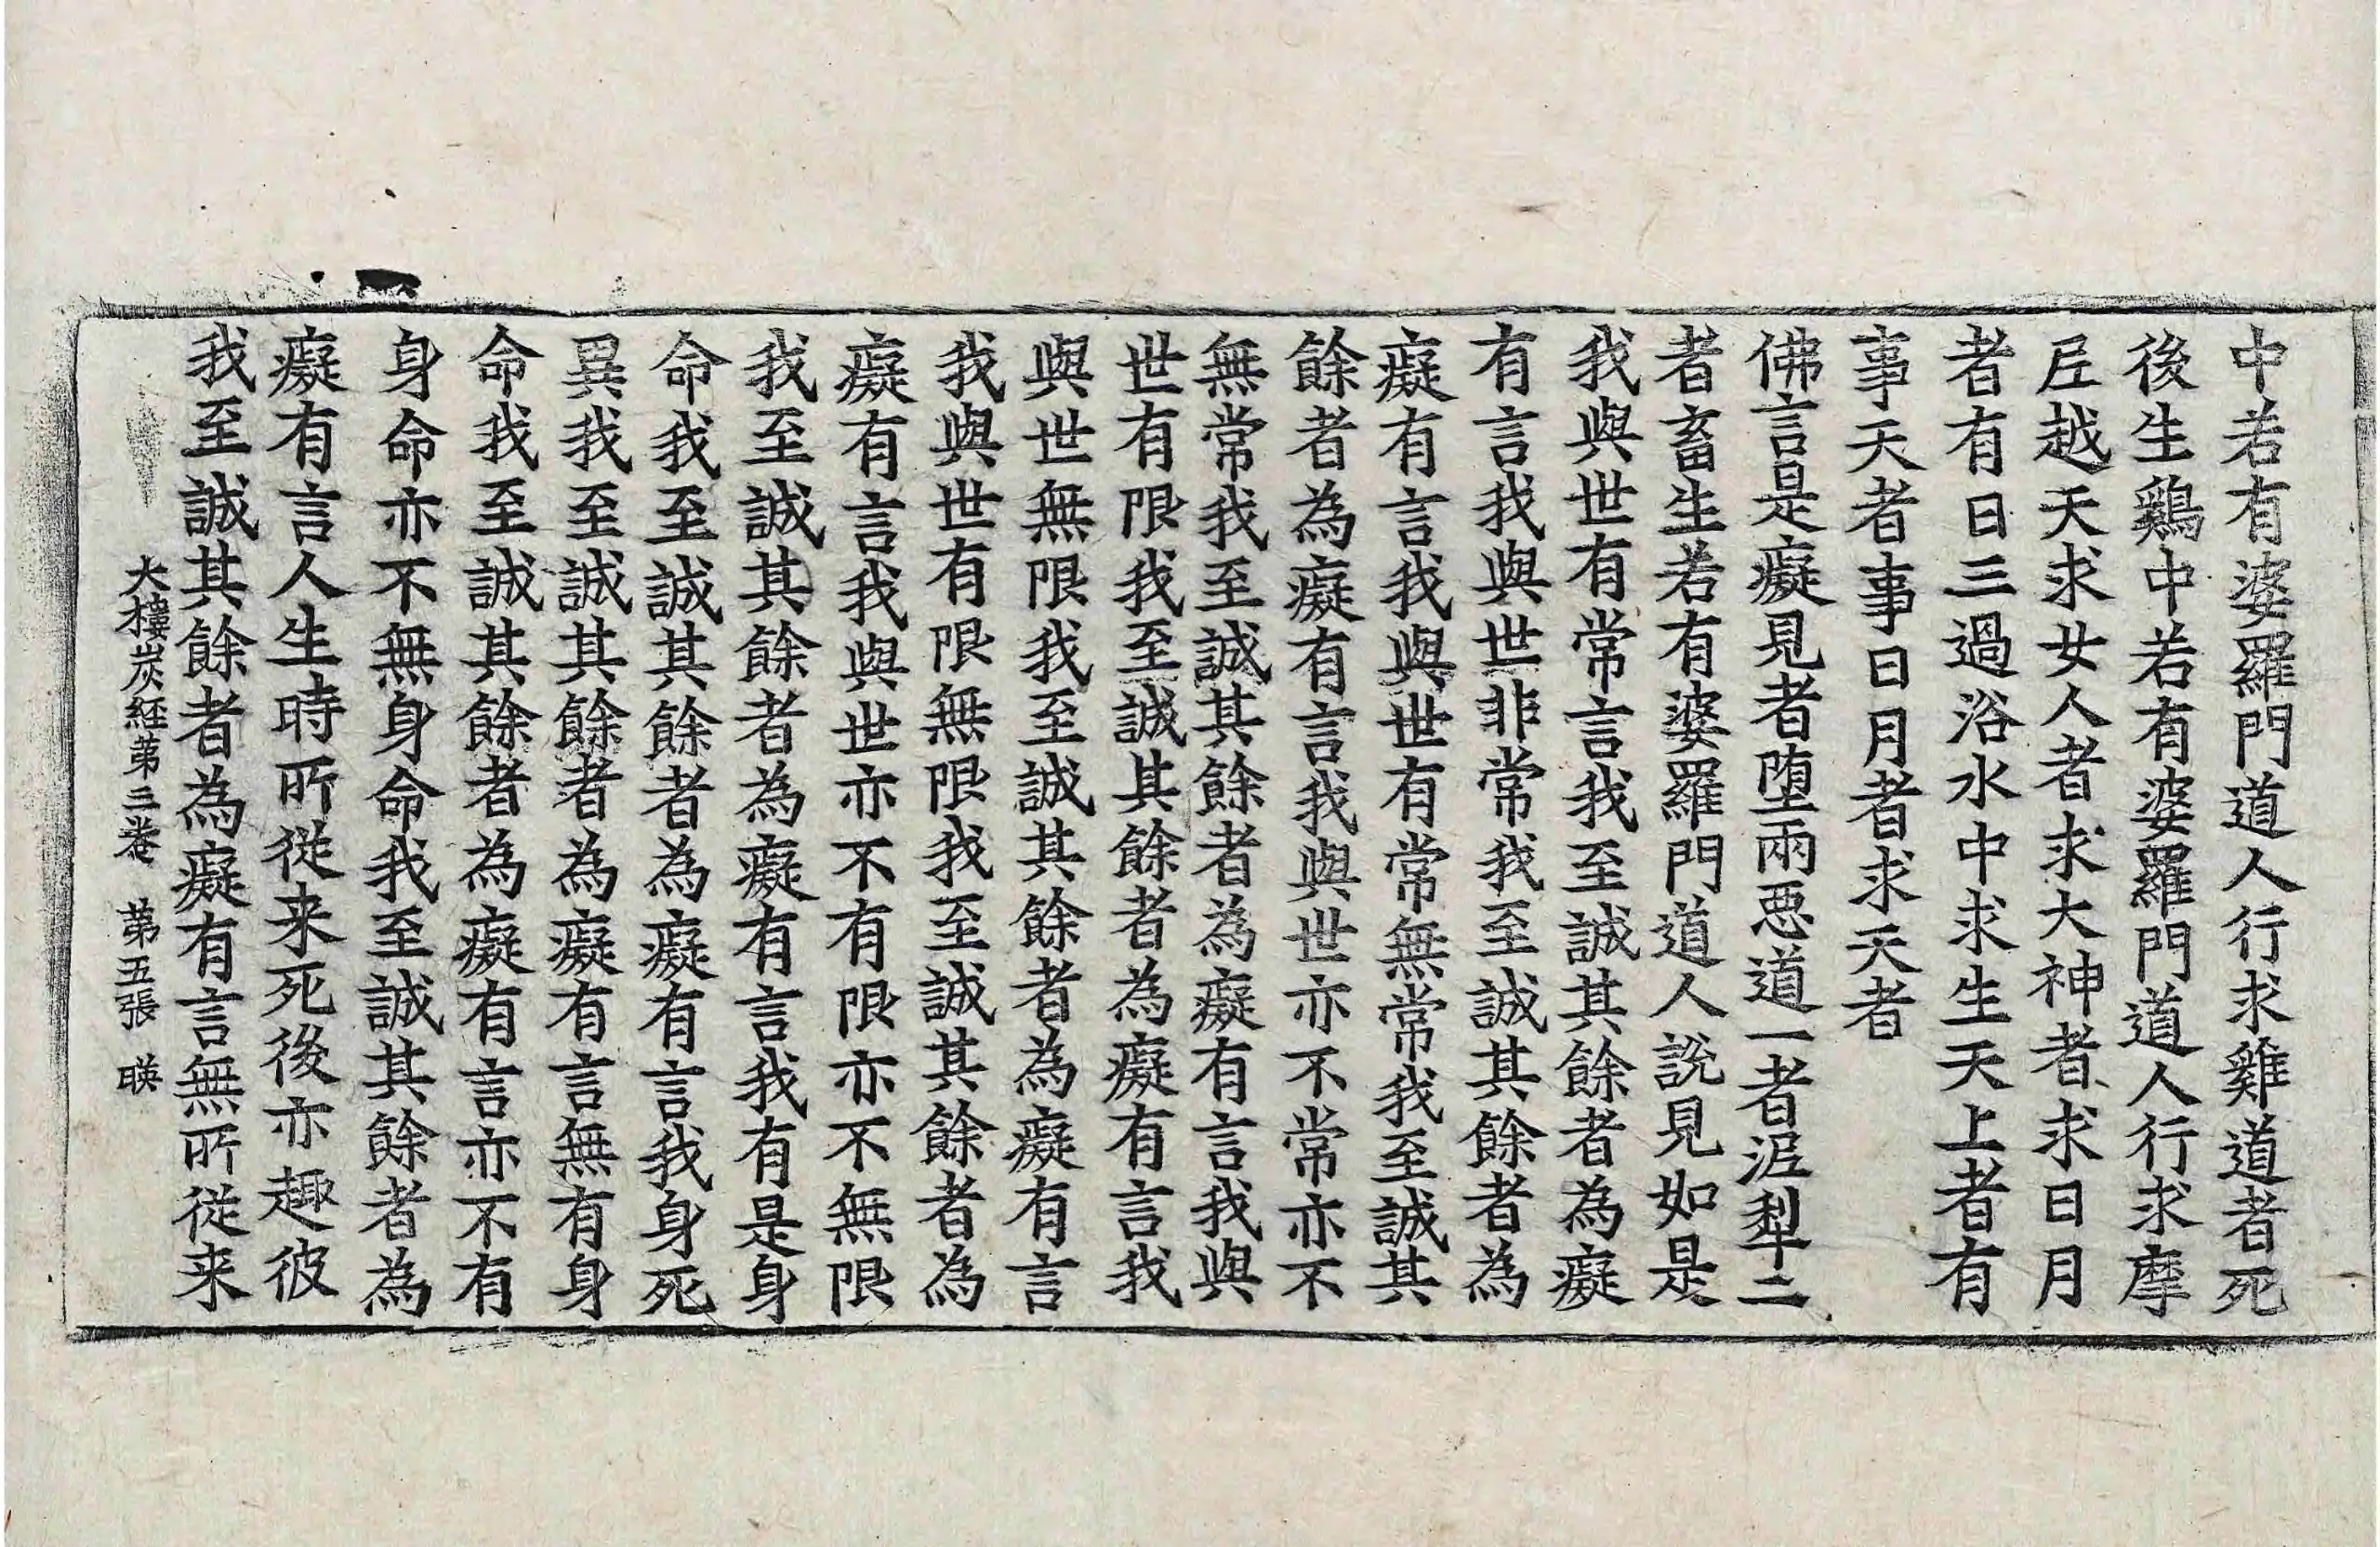 中若有婆羅門道人行求雞道者死
後生鷄中若有婆羅門道人行求摩
尼越天求女人者求大神者求日月
者有日三過浴水中求生天上者有
事天者事日月者求天者
佛言是癡見者堕兩惡道一者泥犁二
者畜生若有婆羅門道人說見如是
我與世有常言我至誠其餘者為癡
有言我與世非常我至誠其餘者為
癡有言我與世有常無常我至誠其
餘者為癡有言我與世亦不常亦不
無常我至誠其餘者為癡有言我與
世有限我至誠其餘者為癡有言我
與世無限我至誠其餘者為癡有言
我與世有限無限我至誠其餘者為
癡有言我與世亦不有限亦不無限
我至誠其餘者為癡有言我有是身
命我至誠其餘者為癡有言我身死
異我至誠其餘者為癡有言無有身
命我至誠其餘者為癡有言亦不有
身命亦不無身命我至誠其餘者為
癡有言人生時所從来死後亦趣彼
我至誠其餘者為癡有言無所從来
大樓炭経第三卷 第五張 暎